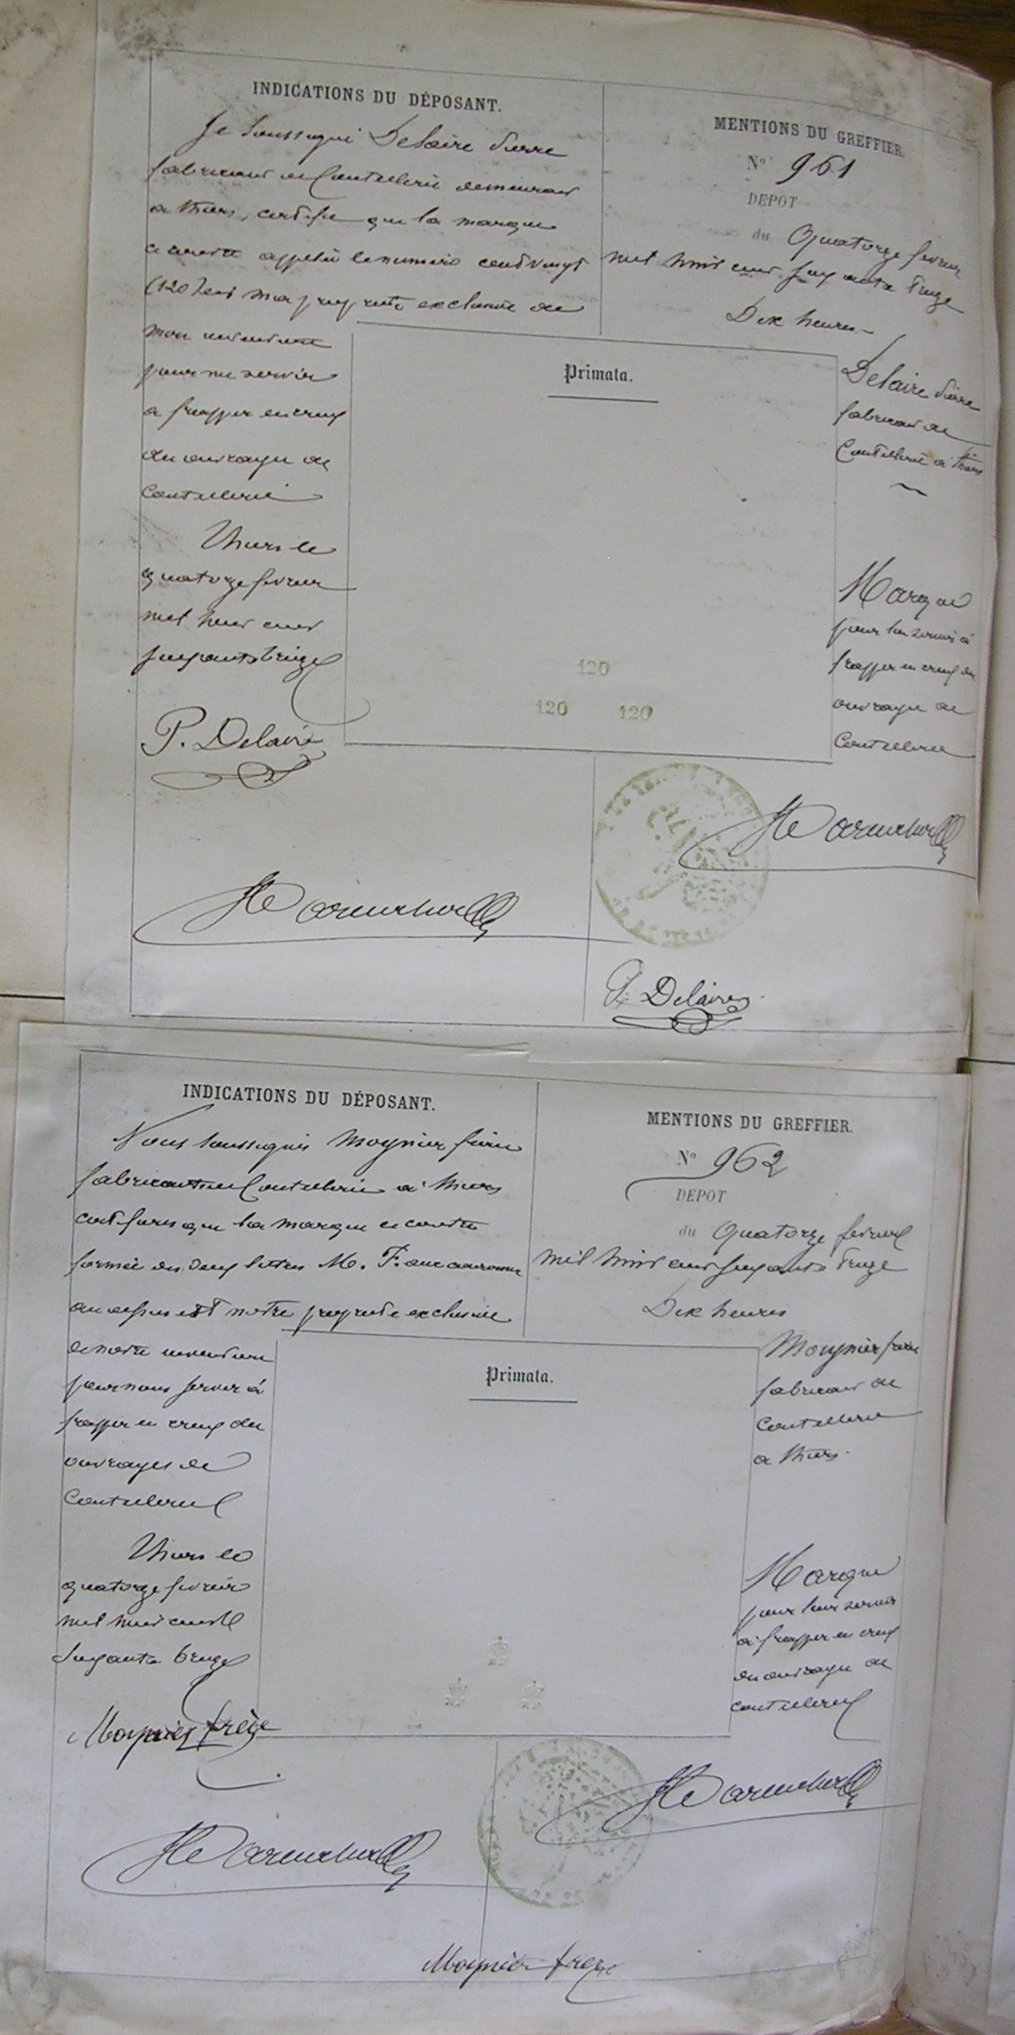 INDICATIONS DU DÉPOSANT.
Je soussigné Delaire Pierre
fabricant de Coutellerie demeurant
à Thiers, certifie que la marque
ci contre appelée le numéro cent vingt
(120) est ma propriété exclusive de
mon invention
pour me servir
à frapper en creux
des ouvrages de
Coutellerie
Thiers le
quatorze février
mil huit cent
soixante treize
P. Delaire
MENTIONS DU GREFFIER.
N° 961
DEPOT
du Quatorze février
mil huit cent soixante treize
Dix heures
Primata.
120
120 120
Delaire Pierre
fabricant de
Coutellerie à Thiers
Marque
pour lui servir à
frapper en creux des
ouvrages de
Coutellerie
P. Delaire
INDICATIONS DU DÉPOSANT.
Nous soussignés Moynier frère
fabricants de Coutellerie à Thiers
certifions que la marque ci contre
formée des deux lettres M. F. une couronne
au dessus est notre propriété exclusive
de notre invention
pour nous servir à
frapper en creux des
ouvrages de
Coutellerie
Thiers le
quatorze février
mil huit cent
soixante treize
Moynier frère
MENTIONS DU GREFFIER.
N° 962
DEPOT
du Quatorze février
mil huit cent soixante treize
Dix heures
Primata.
Moynier frère
fabricant de
Coutellerie
à Thiers
Marque
pour leur servir
à frapper en creux
des ouvrages de
coutellerie
Moynier frère